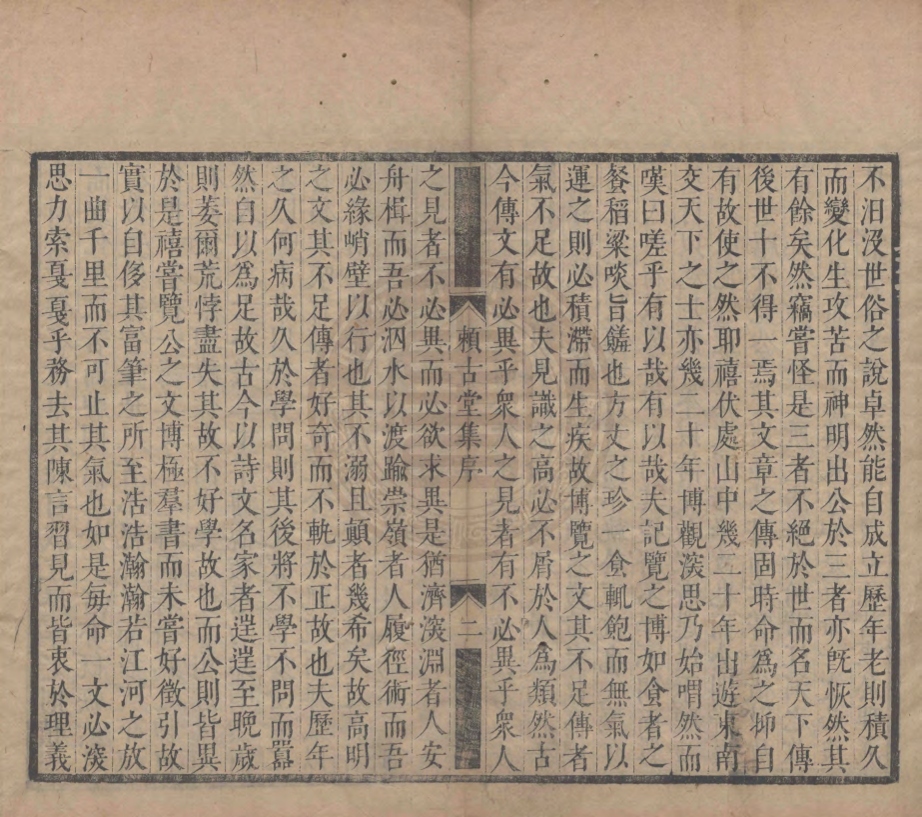 不汨沒世俗之說卓然能自成立歷年老則積久
而變化生攻苦而神明出公於三者亦旣恢然其
有餘矣然竊嘗怪是三者不絕於世而名天下傳
後世十不得一焉其文章之傳固時命爲之抑自
有故使之然耶禧伏處山中幾二十年出遊東南
交天下之士亦幾二十年博觀深思乃始喟然而
嘆曰嗟乎有以哉有以哉夫記覽之博如食者之
餐稻粱啖旨饈也方丈之珍一食輒飽而無氣以
運之則必積滯而生疾故博覽之文其不足傳者
氣不足故也夫見識之高必不屑於人爲類然古
今傳文有必異乎衆人之見者有不必異乎衆人
賴古堂集序
二
之見者不必異而必欲求異是猶濟深淵者人安
舟楫而吾必泅水以渡踰崇嶺者人履徑術而吾
必緣峭壁以行也其不溺且顛者幾希矣故高明
之文其不足傳者好奇而不軌於正故也夫歷年
之久何病哉久於學問則其後將不學不問而囂
然自以爲足故古今以詩文名家者逞逞至晚歲
則萎爾荒悖盡失其故不好學故也而公則皆異
於是禧嘗覽公之文博極羣書而未嘗好徵引故
實以自侈其富筆之所至浩浩瀚瀚若江河之放
一曲千里而不可止其氣也如是每命一文必深
思力索戛戛乎務去其陳言習見而皆衷於理義